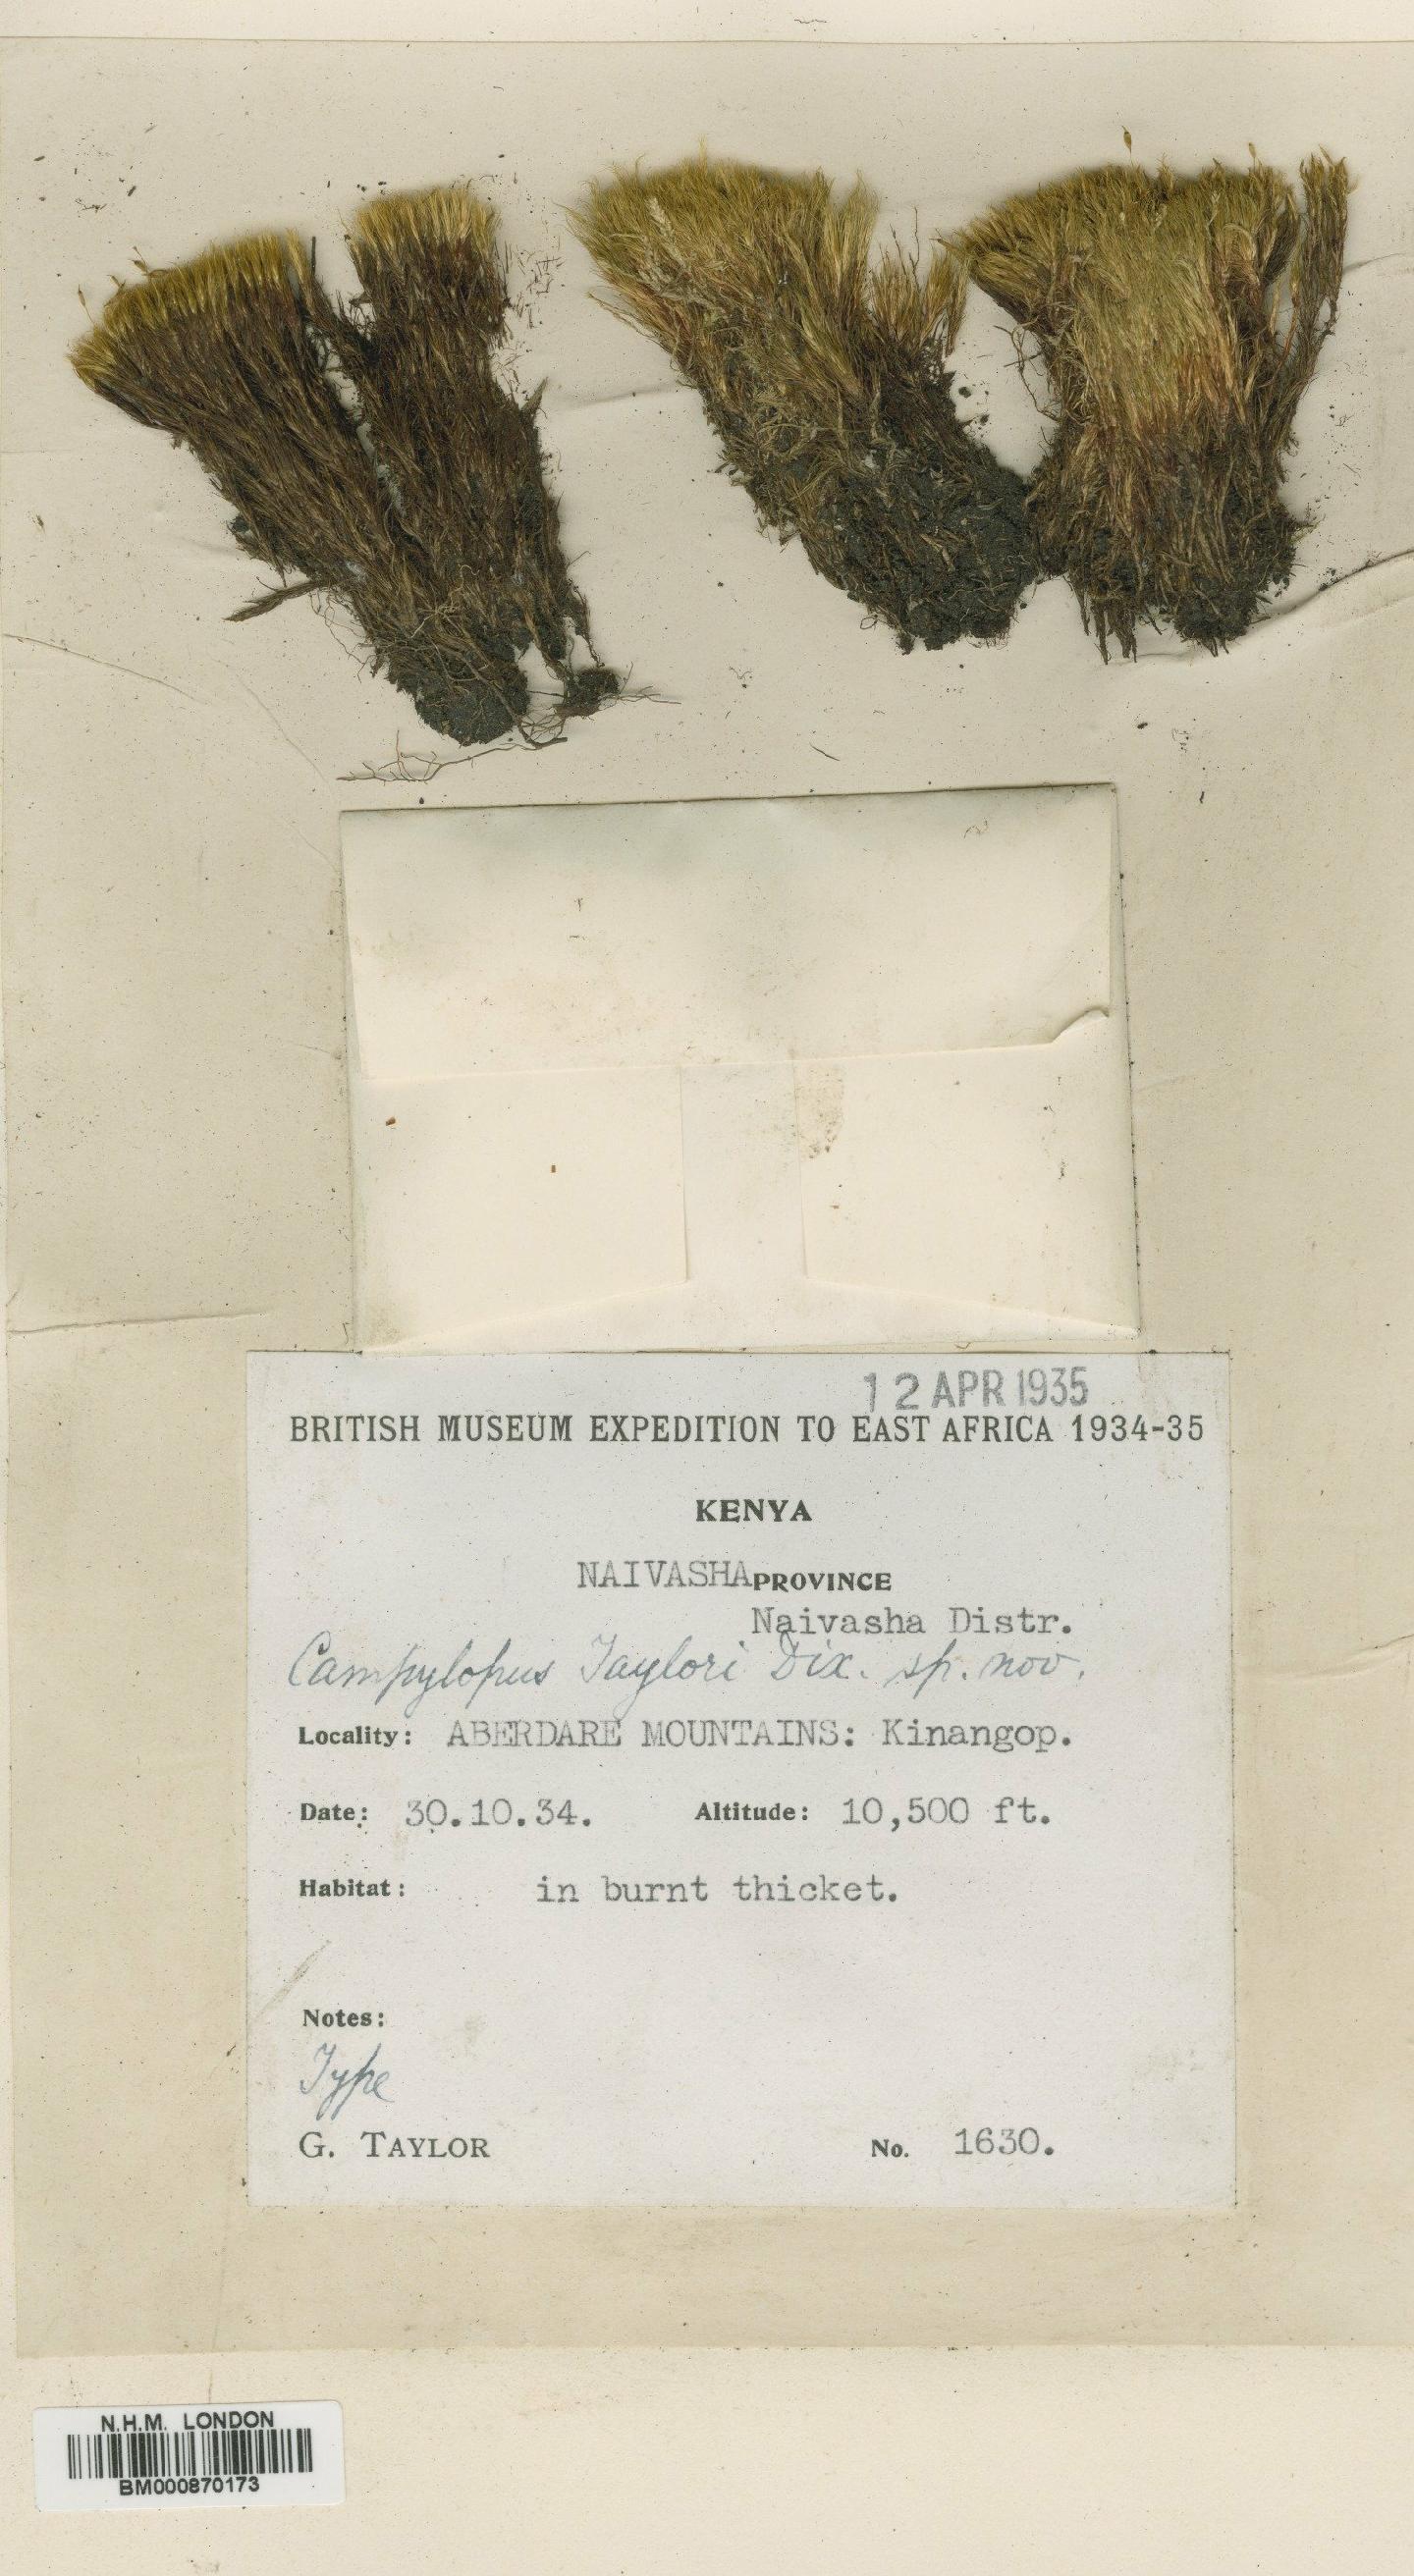 12 APR 1935
BRITISH MUSEUM EXPEDITION TO EAST AFRICA 1934-35
KENYA
NAIVASHA PROVINCE
Naivasha Distr.
Campylopus Taylori Dix. sp. nov.
Locality: ABERDARE MOUNTAINS: Kinangop.
Date: 30.10.34. Altitude: 10,500 ft.
Habitat: in burnt thicket.
Notes:
Type
G. TAYLOR No. 1630.
N.H.M. LONDON
BM000870173